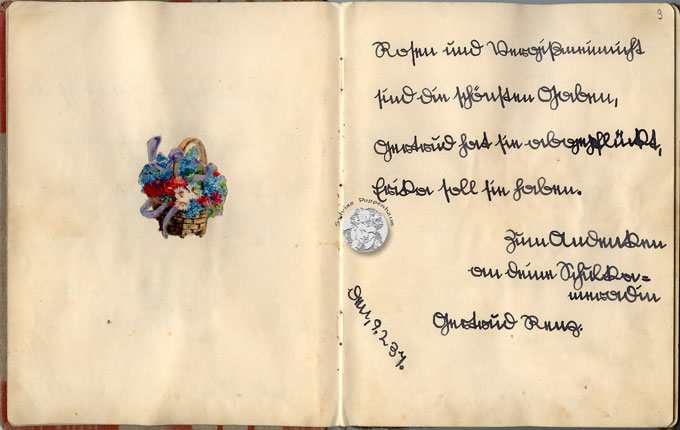 3
Rosen und Vergißmeinnicht
sind die schönsten Gaben,
Gertrud hat sie abgepflückt,
Erika soll sie haben.
Zum Andenken
an deine Schulka=
meradin
Gertrud Renz.
den, 9, 2 37.
Sylvias Puppenhaus